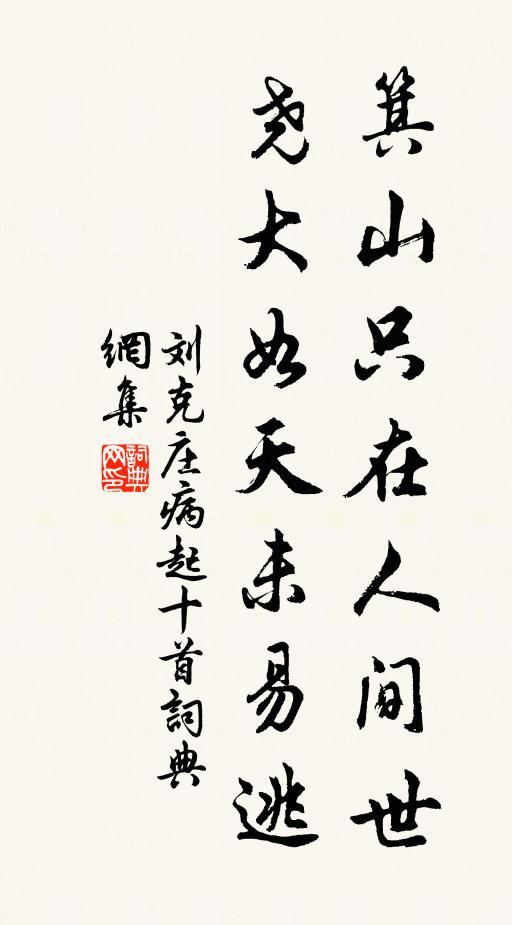 箕山只在人间世
尧大如天未易逃
刘克庄病起十首詞典
網集
詞典
网印